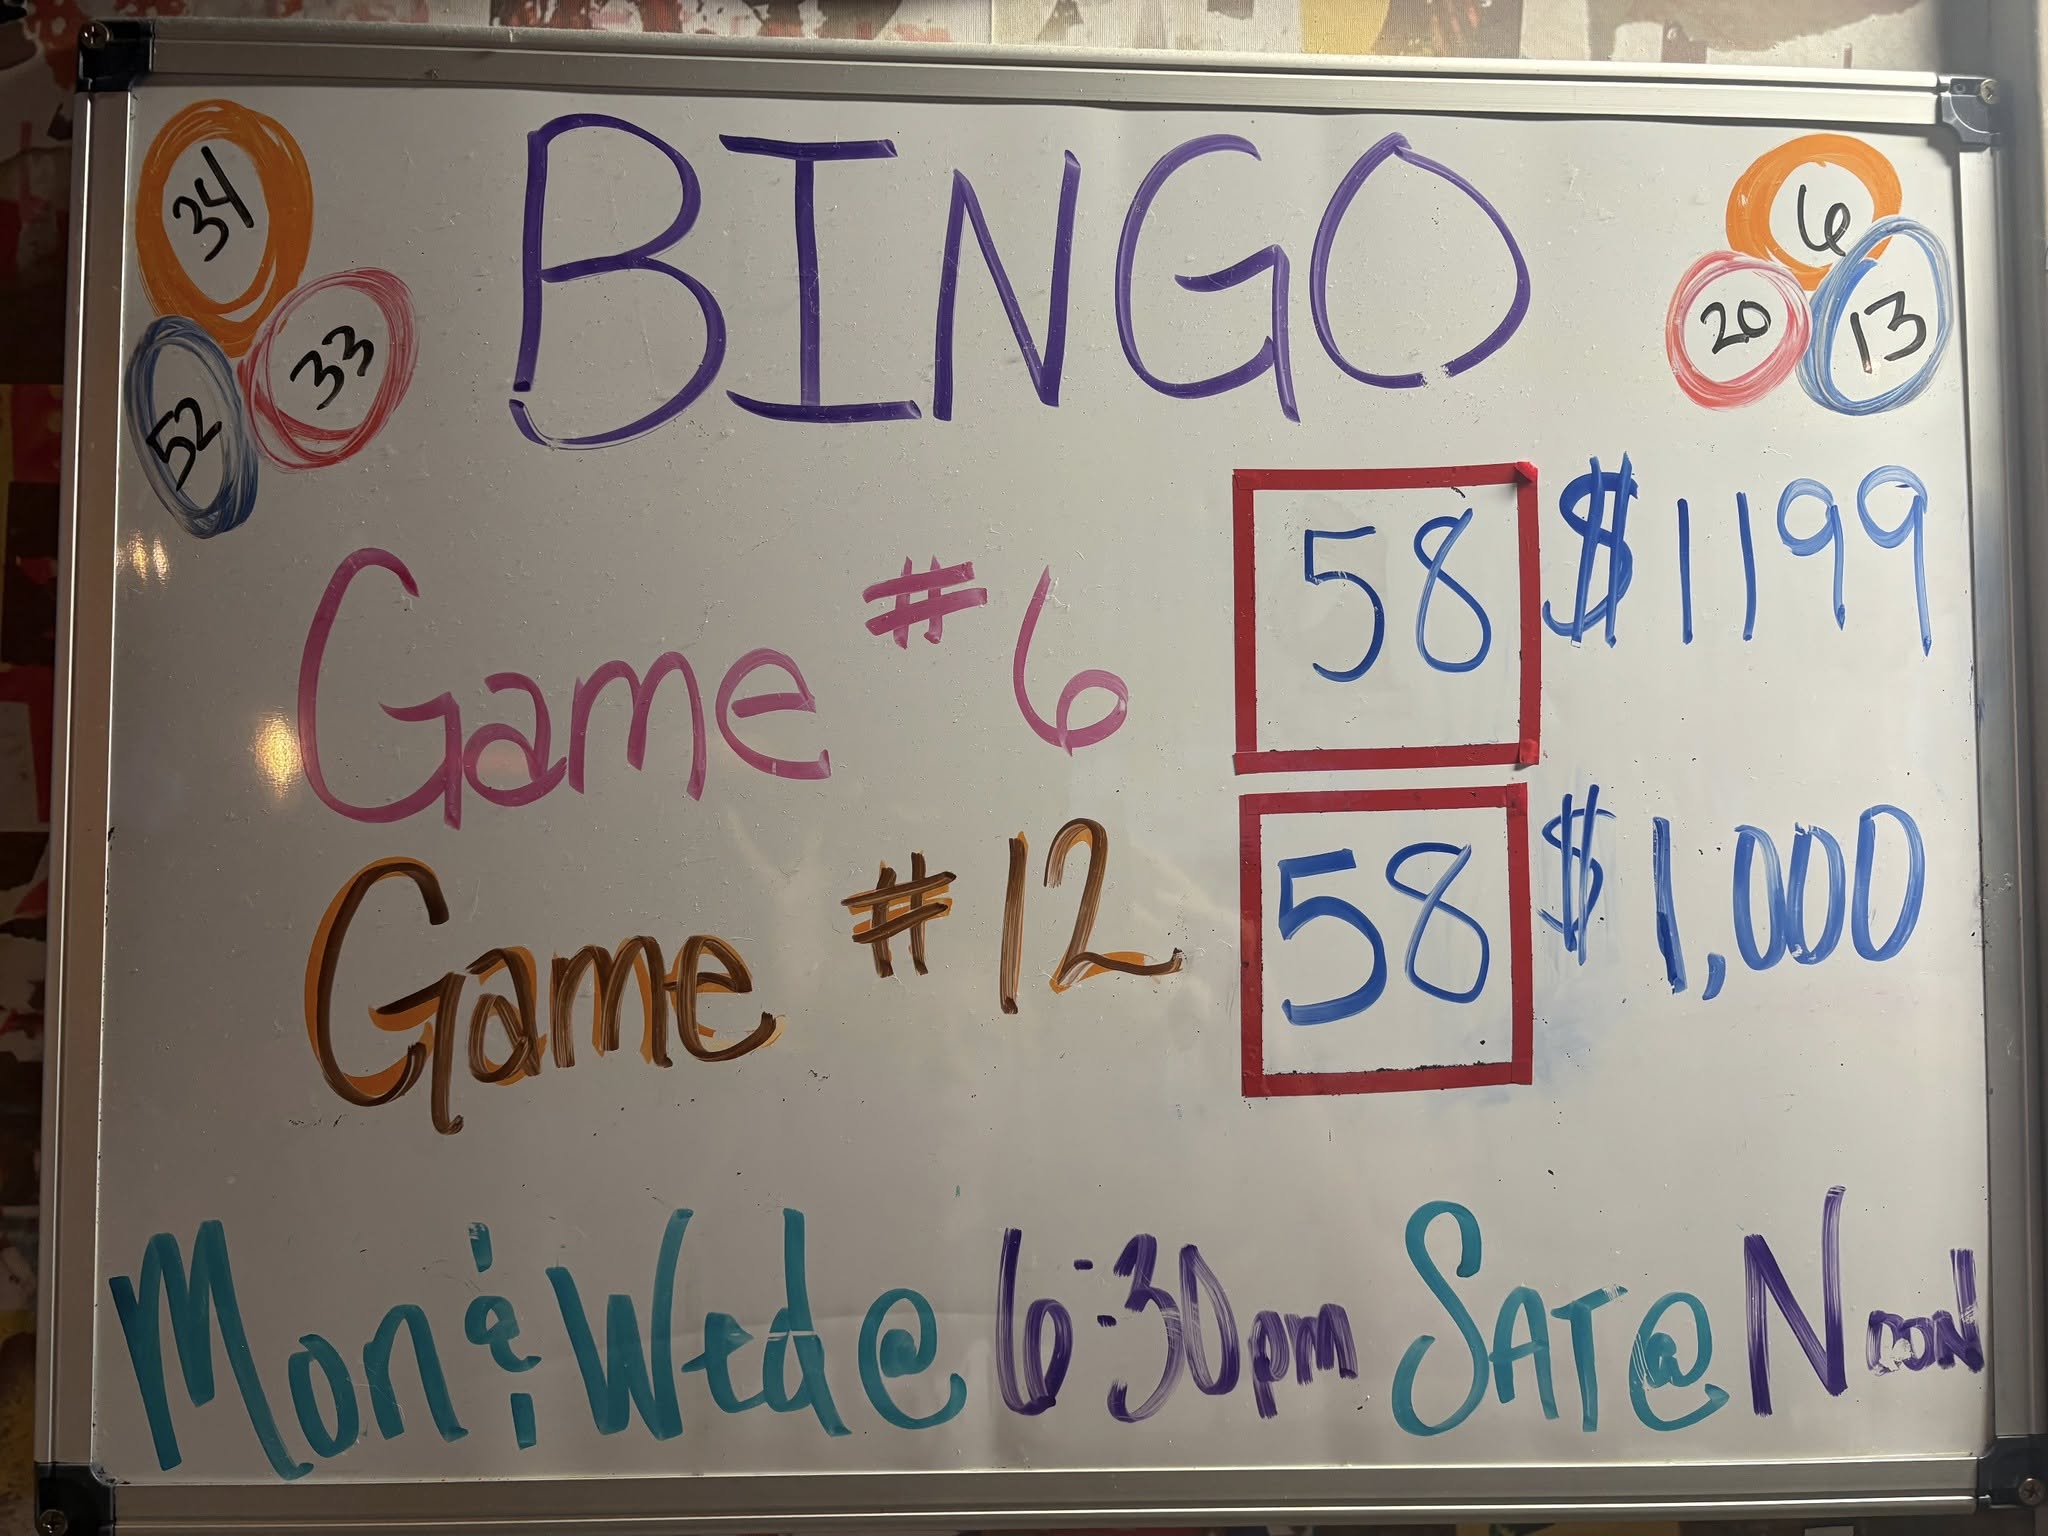 BINGO
34
33
52
6
20
13
Game #6 58 $1199
Game #12 58 $1,000
Mon & Wed @ 6:30pm SAT @ Noon